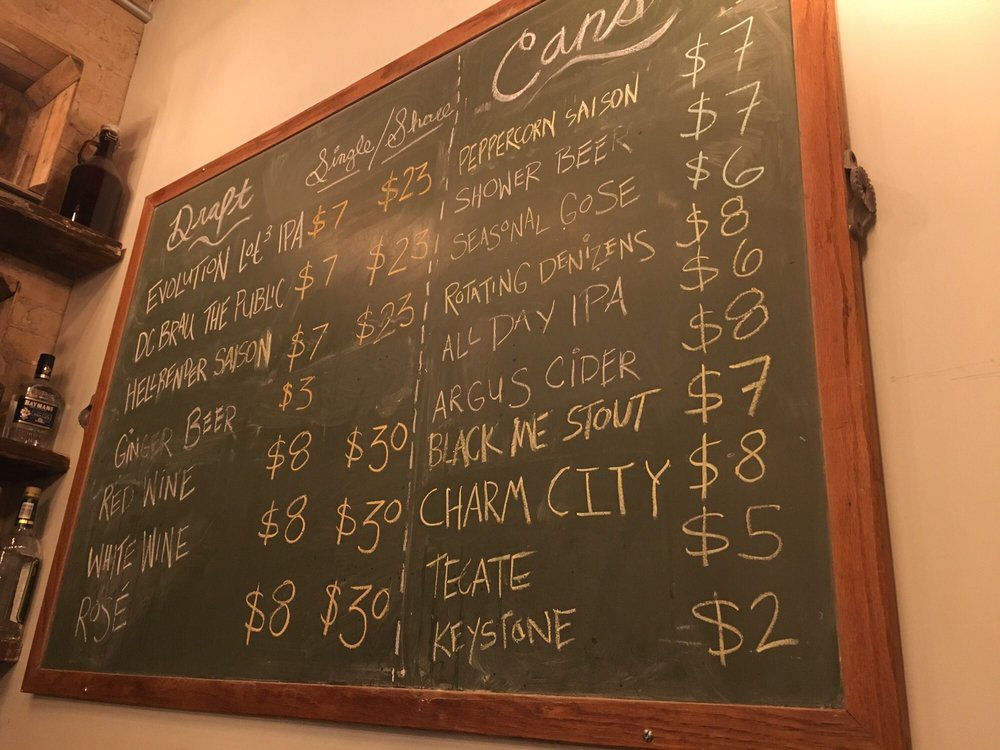 Draft Single/Share
EVOLUTION LOT³ IPA $7 $23
DC BRAU THE PUBLIC $7 $23
HELLBENDER SAISON $7 $23
GINGER BEER $3
RED WINE $8 $30
WHITE WINE $8 $30
ROSÉ $8 $30
Cans
PEPPERCORN SAISON $7
SHOWER BEER $7
SEASONAL GOSE $6
ROTATING DENIZENS $8
ALL DAY IPA $6
ARGUS CIDER $8
BLACK ME STOUT $7
CHARM CITY $8
TECATE $5
KEYSTONE $2
HAYMANS